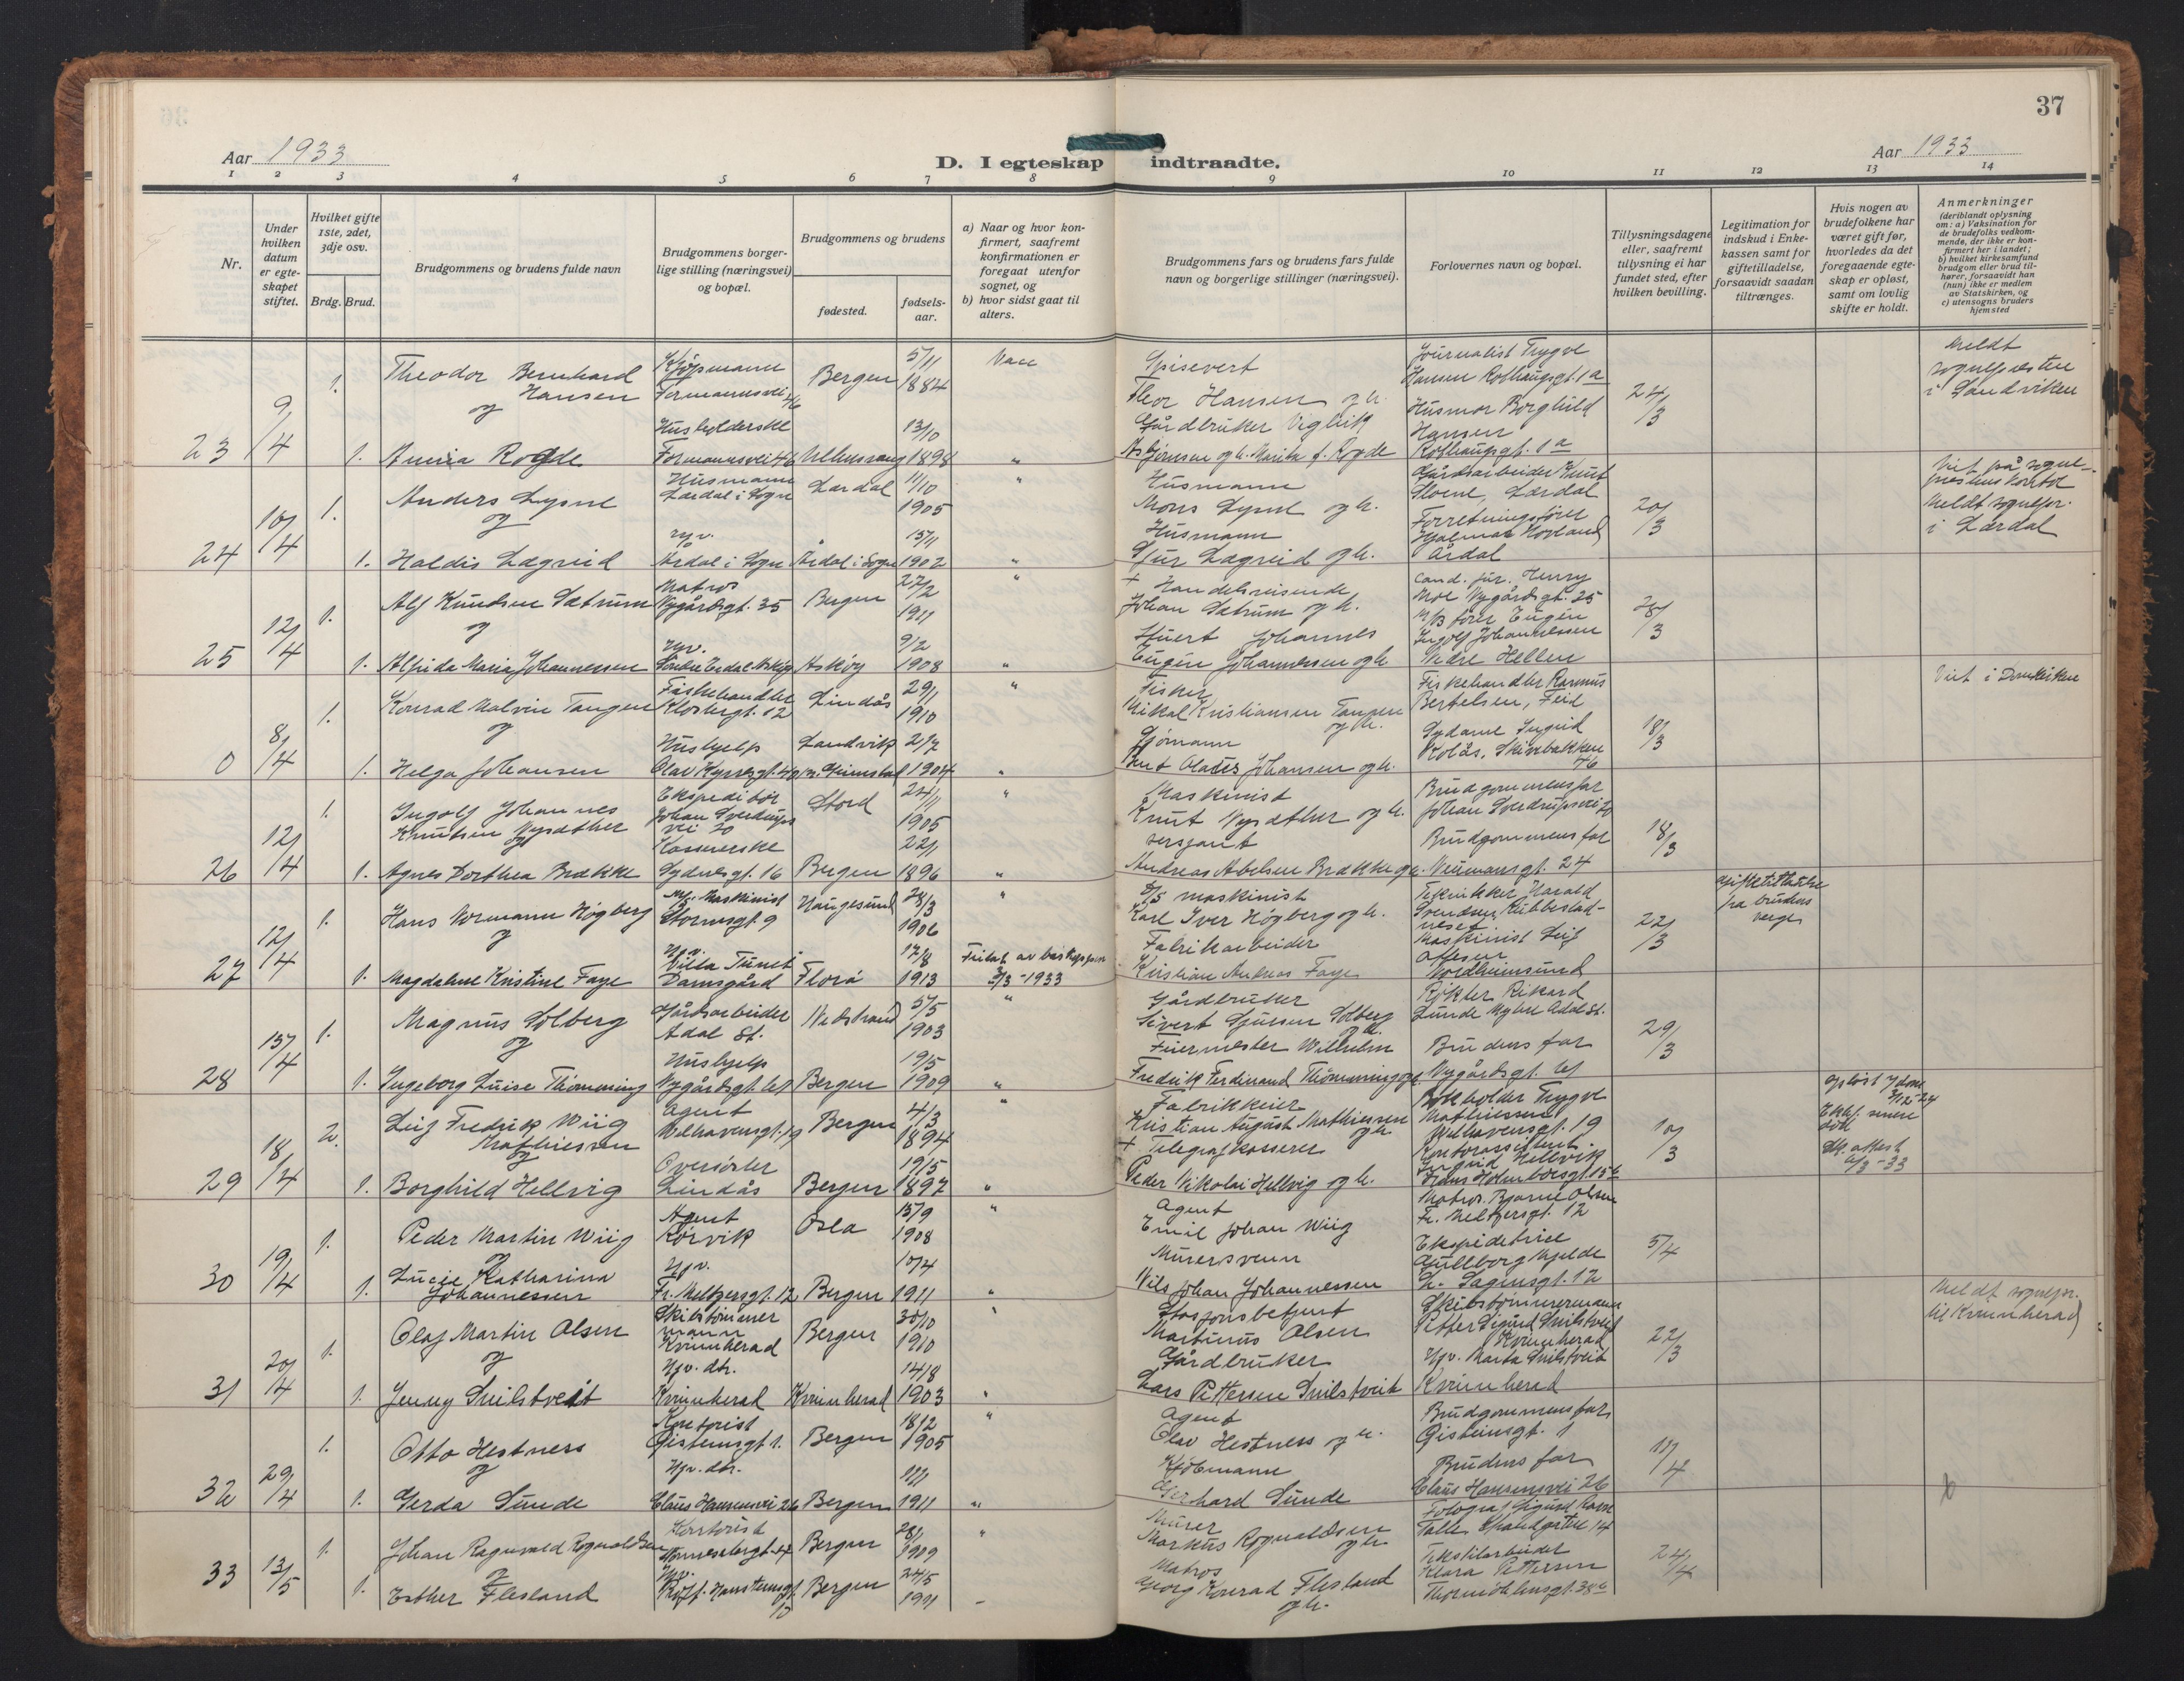 37
Aar 1933
D. I egteskap indtraadte.
Aar 1933
1 2 3 4 5 6 7 8 9 10 11 12 13 14
Nr.
Under hvilken datum er egteskapet stiftet.
Hvilket gifte 1ste, 2det, 3dje osv.
Brdg. Brud.
Brudgommens og brudens fulde navn
Brudgommens borgerlige stilling (næringsvei) og bopæl.
Brudgommens og brudens
fødested.
fødselsaar.
a) Naar og hvor konfirmert, saafremt konfirmationen er foregaat utenfor sognet, og
b) hvor sidst gaat til alters.
Brudgommens fars og brudens fars fulde navn og borgerlige stillinger (næringsvei).
Forlovernes navn og bopæl.
Tillysningsdagene eller, saafremt tillysning ei har fundet sted, efter hvilken bevilling.
Legitimation for indskud i Enkekassen samt for giftetilladelse, forsaavidt saadan tiltrænges.
Hvis nogen av brudefolkene har været gift før, hvorledes da det foregaaende egteskap er opløst, samt om lovlig skifte er holdt.
Anmerkninger
(deriblandt oplysning om: a) Vaksination for de brudefolks vedkommende, der ikke er konfirmert her i landet; b) hvilket kirkesamfund brudgom eller brud tilhører, forsaavidt han (hun) ikke er medlem av Statskirken, og c) utensogns bruders hjemsted
23 9/4 1. Theodor Bernhard Hansen og Kjøpmann Formannsvei 46 Bergen 5/11 1884
Spisevert Theor Hansen og h. Journalist Trygve Hansen Rothaugsgt. 1a 24/3 Meldt sognepresten i Sandviken
1. Anna Rogde Husholderske Formannsvei 46 Ullensvang 13/10 1898 "
Gårdbruker Vigleik Asbjørnsen og h. Marita f. Rogde Husmor Borghild Hansen Rothaugsgt. 1a
24 10/4 1. Anders Lysne og Husmann Lærdal i Sogn Lærdal 11/10 1905 "
Husmann Mons Lysne og h. Gårdsarbeider Knut Lærdal 20/3 Viet på sogneprestens kontor Meldt sognepr. i Lærdal
1. Haldis Lægreid Hjv. Årdal i Sogn Årdal i Sogn 15/11 1902 "
Husmann Sjur Lægreid og h. Forretningsfører Hjalmar Hovland Årdal
25 12/4 1. Alf Knudsen Sætrum og Matros Nygårdsgt. 35 Bergen 27/2 1911 "
+ Handelsreisende Johan Sætrum og h. Cand. jur. Henry Moe Nygårdsgt. 25 28/3
1. Alfrida Maria Johannessen Hjv. Askøy 9/2 1908 "
Johannes Eugen Johannessen og h. M/B fører Eugen Ingolf Johannessen Nedre Hellen
0 8/4 1. Konrad Malvin Tangen og Fiskehandler Klostergt. 12 Lindås 29/1 1910 "
Fisker Mikal Kristiansen Tangen og h. Fiskehandler Rasmus Bertelsen, 18/3 Viet i Domkirken
1. Helga Johansen Hushjelp Olav Kyrresgt. 40 Landvik pr. Grimstad 21/7 1904 "
Sjømann Johansen og h. Sydame Ingrid Kolås, Skivebakken 46
26 12/4 1. Ingolf Johannes Knutsen Nysæther og Ekspeditør Johan Sverdrups vei 20 Stord 24/11 1905 "
Maskinist Knut Nysæther og h. Brudgommens far Johan Sverdrupsvei 20 18/3
1. Agnes Dorthea Brække Kassererske Sydnesgt. 16 Bergen 22/1 1896 "
sersjant Andreas Abelsen Brække og h. Brudgommens far Neumansgt. 24
27 12/4 1. Hans Normann Høgberg og Maskinist Stormsgt 9 Haugesund 28/3 1906 "
D/S maskinist Karl Iver Høgberg og h. Tekniker Harald Svendsen, Kubbestadneset 22/3 Giftetillatelse fra brudens verge
1. Magdalene Kristine Faye Hjv. Villa Tunet Damsgård Florø 17/8 1913 Fritat av biskopen 3/3-1933
Fabrikarbeider Kristian Andreas Faye Maskinist Leif Nordheimsund
28 15/4 1. Magnus Solberg og Gårdsarbeider Ådal st. Nedstrand 5/5 1903 "
Gårdbruker Sivert Sjursen Solberg og h. Røkter Rikard Lunde Ådal st. 29/3
1. Ingeborg Luise Thömming Hushjelp Nygårdsgt. 61 Bergen 19/5 1909 "
Feiermester Wilhelm Fredrik Ferdinand Thömming og h. Brudens far Nygårdsgt. 61
29 18/4 2. Leif Fredrik Wiig Mathiesen og Agent Welhavensgt. 19 Bergen 4/3 1894 "
Fabrikkeier Kristian August Mathiesen og h. Bokholder Trygve Mathiesen Welhavensgt. 19 10/3 Opløst v/ dom
1. Borghild Hellvig Lindås Bergen 19/5 1897 "
+ Telegrafkasserer Peder Nikolai Hellvig og h. Kontorassistent Ingrid Hellvig Frans Holmboesgt. 15b
30 19/4 1. Peder Martin Wiig og Agent Rørvik Oslo 15/9 1908 "
Agent Emil Johan Wiig Matros Bjarne Olsen Fr. Meltzersgt. 12 5/4
1. Lucie Katharina Johannessen Hjv. Fr. Meltzersgt. 12 Bergen 10/4 1911 "
Murersvenn Nils Johan Johannessen Ekspeditrice Gullborg Mjelde L. Sagensgt. 12
31 20/4 1. Olaf Martin Olsen og Skibstømmermann Kvinnherad Bergen 30/10 1910 "
Stasjonsbetjent Martinus Olsen Skibstømmermann Petter Sigurd Snilstveit Kvinnherad 22/3 Meldt sognepr. til Kvinnherad
1. Jenny Snilstveit Hjv. dtr. Kvinnherad Kvinnherad 14/8 1903 "
Gårdbruker Lars Pettersen Snilstveit Hjv. Marta Snilstveit Kvinnherad
32 29/4 1. Otto Hestness og Kontorist Gisteinsgt 1. Bergen 18/2 1905 "
Agent Olav Hestness og h. Brudgommens far Gisteinsgt. 1 11/4
1. Gerda Sunde Hjv. dtr. Claus Hansensvei 26 Bergen 1/11 1911 "
Kjøbmann Gerhard Sunde Brudens far Claus Hansensvei 26
33 13/5 1. Johan Ragnvald Rognaldsen og Kontorist Bergen 28/1 1909 "
Murer Markus Rognaldsen og h. Fotograf Sigurd 24/4
1. Esther Flesland Hjv. Bergen 24/5 1911 -
Matros Georg Konrad Flesland og h. Tekstilarbeider Klara Pettersen Thormøhlensgt. 38b